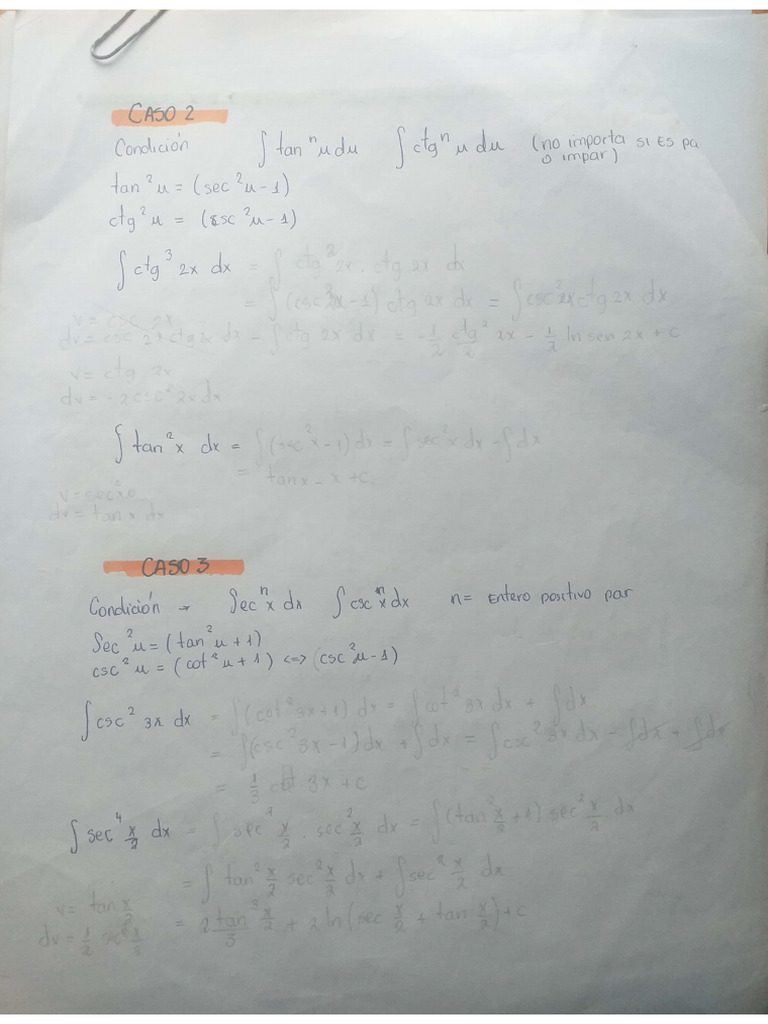 CASO 2
Condición ∫ tan^n u du ∫ ctg^n u du (no importa si es pa
o impar)
tan²u = (sec²u - 1)
ctg²u = (csc²u - 1)
∫ ctg³ 2x dx = ∫ ctg² 2x . ctg 2x dx
= ∫ (csc² 2x - 1) ctg 2x dx = ∫ csc² 2x ctg 2x dx
v = csc 2x
dv = csc 2x ctg 2x dx - ∫ ctg 2x dx = - 1/2 ctg² 2x / 2 - 1/2 ln sen 2x + c
v = ctg 2x
dv = -2csc² 2x dx
∫ tan² x dx = ∫ (sec² x - 1) dx = ∫ sec² x dx - ∫ dx
= tan x - x + c
v = sec²
dv = tan x dx
CASO 3
Condición → ∫ec^n x dx ∫ csc^n x dx n = Entero positivo par
Sec²u = (tan²u + 1)
csc²u = (cot²u + 1) <=> (csc²u - 1)
∫ csc² 3x dx = ∫ (cot² 3x + 1) dx = ∫ cot² 3x dx + ∫ dx
= ∫ (csc² 3x - 1) dx + ∫ dx = ∫ csc² 3x dx - ∫ dx + ∫ dx
= 1/3 cot 3x + c
∫ sec⁴ x/2 dx = ∫ sec² x/2 . sec² x/2 dx = ∫ (tan² x/2 + 1) sec² x/2 dx
= ∫ tan² x/2 sec² x/2 dx + ∫ sec² x/2 dx
v = tan x/2
dv = 1/2 sec² x/2 = 2 tan³/3 x/2 + 2 ln (sec x/2 + tan x/2) + c